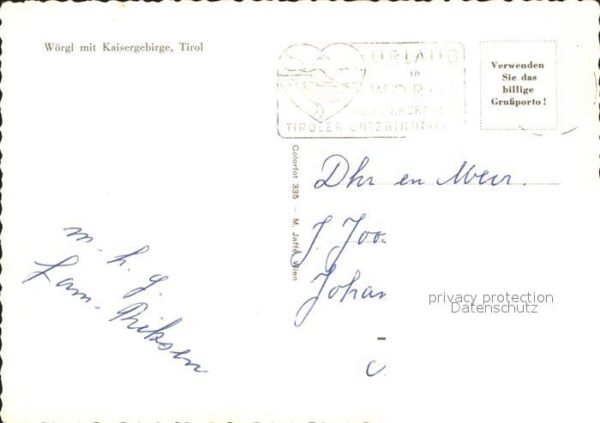 Wörgl mit Kaisergebirge, Tirol
URLAUB
in
WÖRGL
TIROLER UNTERINNTAL
Verwenden
Sie das
billige
Grußporto!
Colorfot 335 — M. Jaffé, Wien
Dhr en Mevr.
J. Joo
Johan
m. h. g.
Fam. Riksen
privacy protection
Datenschutz